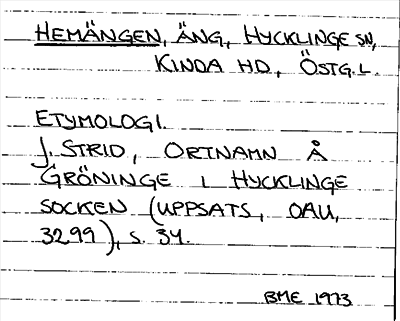 HEMÄNGEN, ÄNG, HYCKLINGE SN,
KINDA HD, ÖSTG.L.
ETYMOLOGI.
J. STRID, ORTNAMN Å
GRÖNINGE I HYCKLINGE
SOCKEN (UPPSATS, OAU,
3299), S. 34.
BME 1973